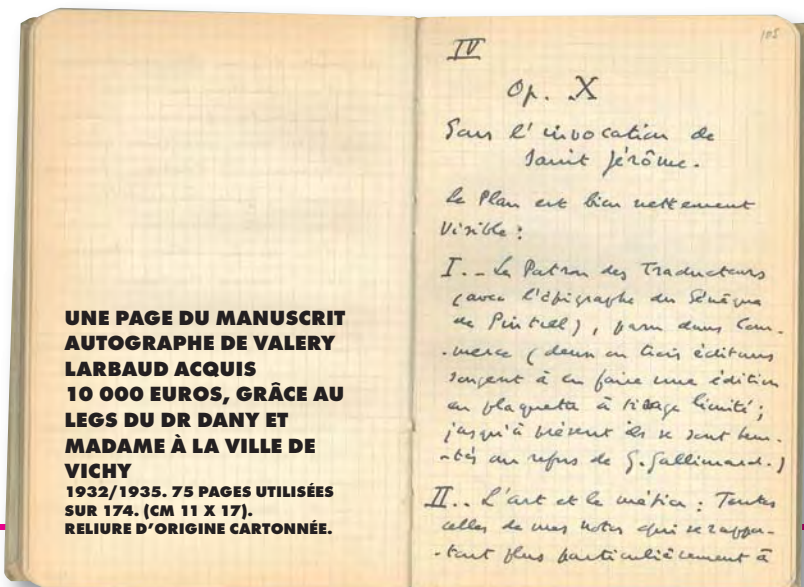 UNE PAGE DU MANUSCRIT
AUTOGRAPHE DE VALERY
LARBAUD ACQUIS
10 000 EUROS, GRÂCE AU
LEGS DU DR DANY ET
MADAME À LA VILLE DE
VICHY
1932/1935. 75 PAGES UTILISÉES
SUR 174. (CM 11 X 17).
RELIURE D'ORIGINE CARTONNÉE.
105
IV
Op. X
Sous l'invocation de
Saint Jérôme.
Le Plan est bien nettement
visible :
I. - Le Patron des Traducteurs
(avec l'épigraphe du Sénèque
de Pintrel), paru dans Com-
-merce (deux ou trois éditeurs
songent à en faire une édition
en plaquette à tirage limité ;
jusqu'à présent ils se sont heur-
-tés au refus de G. Gallimard.)
II. - L'art et le métier : Toutes
celles de mes notes qui se rappor-
-tent plus particulièrement à